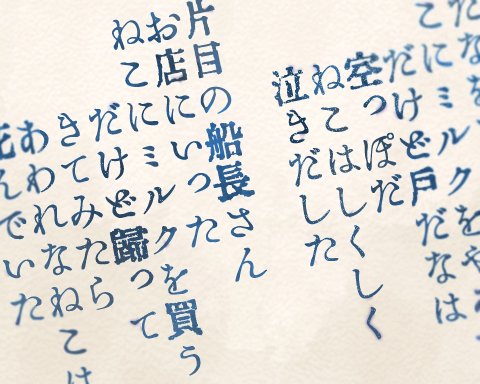 だなを
こにミルクをや
だけど戸だなは
空っぽだ
ねこはしくしく
泣きだした
片目の船長さん
お店にいった
ねこにミルクを買う
だけど歸って
きてみたら
あわれなねこは
死んでいた